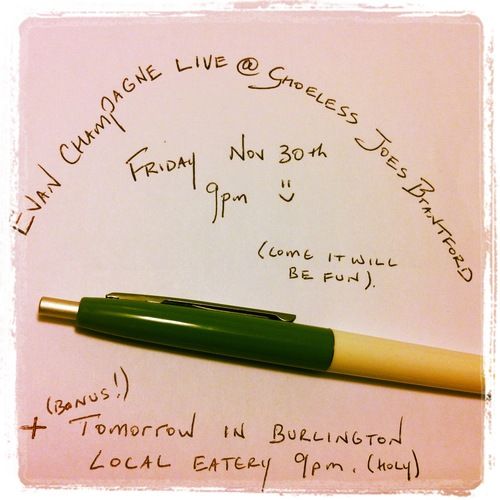 EVAN CHAMPAGNE LIVE @ SHOELESS JOES BRANTFORD
FRIDAY NOV 30th
9pm
(COME IT WILL
BE FUN).
(BONUS!)
+ TOMORROW IN BURLINGTON
LOCAL EATERY 9pm. (HOLY)